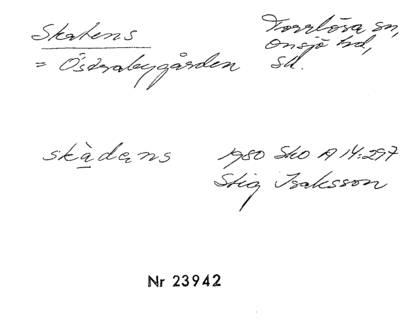 Skatens Torrlösa sn,
Onsjö hd,
= Östrabygården Sk.
skàdens 1980 Sko A 14:297
Stig Isaksson
Nr 23942